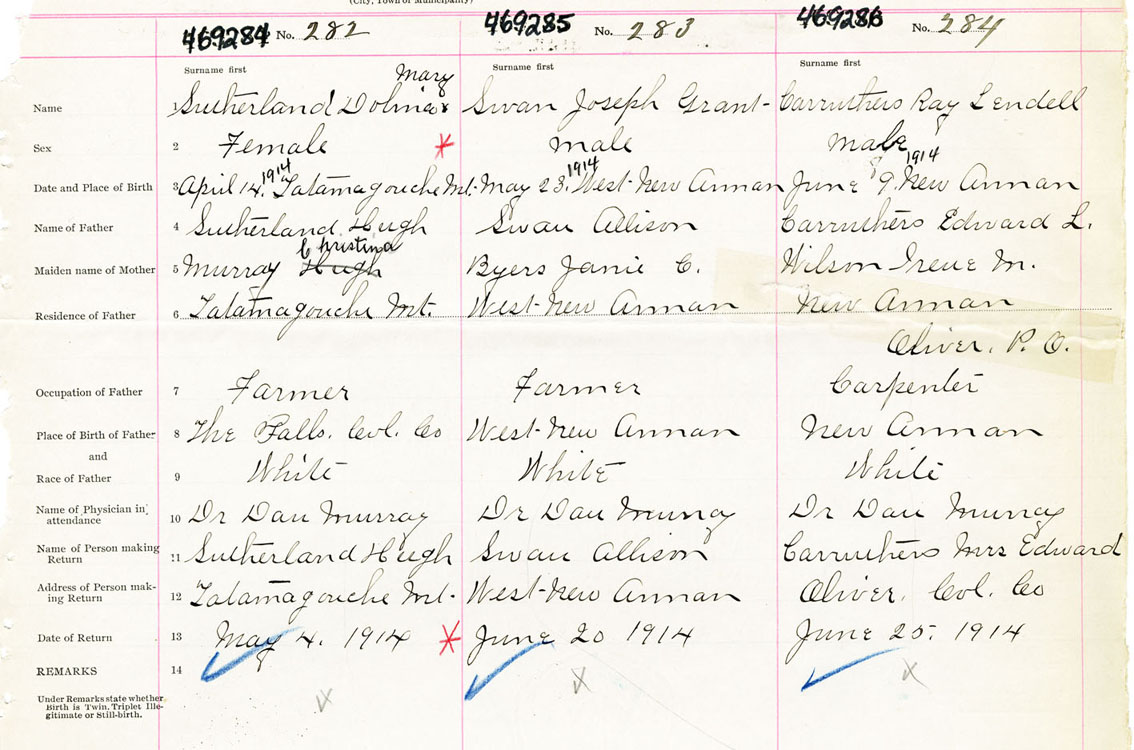 (City, Town or Municipality)
469284 No. 282 469285 No. 283 469286 No. 284
Surname first Surname first Surname first
Mary
Name 1 Sutherland Dolina Swan Joseph Grant- Carruthers Ray Lendell
Sex 2 Female * male male
1914 1914 1914
Date and Place of Birth 3 April 14, Tatamagouche Mt. May 23, West-New Annan June 9. New Annan
Name of Father 4 Sutherland Hugh Swan Allison Carruthers Edward L.
Christina
Maiden name of Mother 5 Murray Hugh Byers Janie C. Wilson Irene M.
Residence of Father 6 Tatamagouche Mt. West-New Annan New Annan
Oliver. P. O.
Occupation of Father 7 Farmer Farmer Carpenter
Place of Birth of Father 8 The Falls. Col. Co West-New Annan New Annan
and
Race of Father 9 White White White
Name of Physician in attendance 10 Dr Dan Murray Dr Dan Murray Dr Dan Murray
Name of Person making Return 11 Sutherland Hugh Swan Allison Carruthers Mrs Edward
Address of Person making Return 12 Tatamagouche Mt. West-New Annan Oliver. Col. Co
Date of Return 13 May 4. 1914 * June 20 1914 June 25. 1914
REMARKS 14
Under Remarks state whether
Birth is Twin, Triplet Ille-
gitimate or Still-birth.